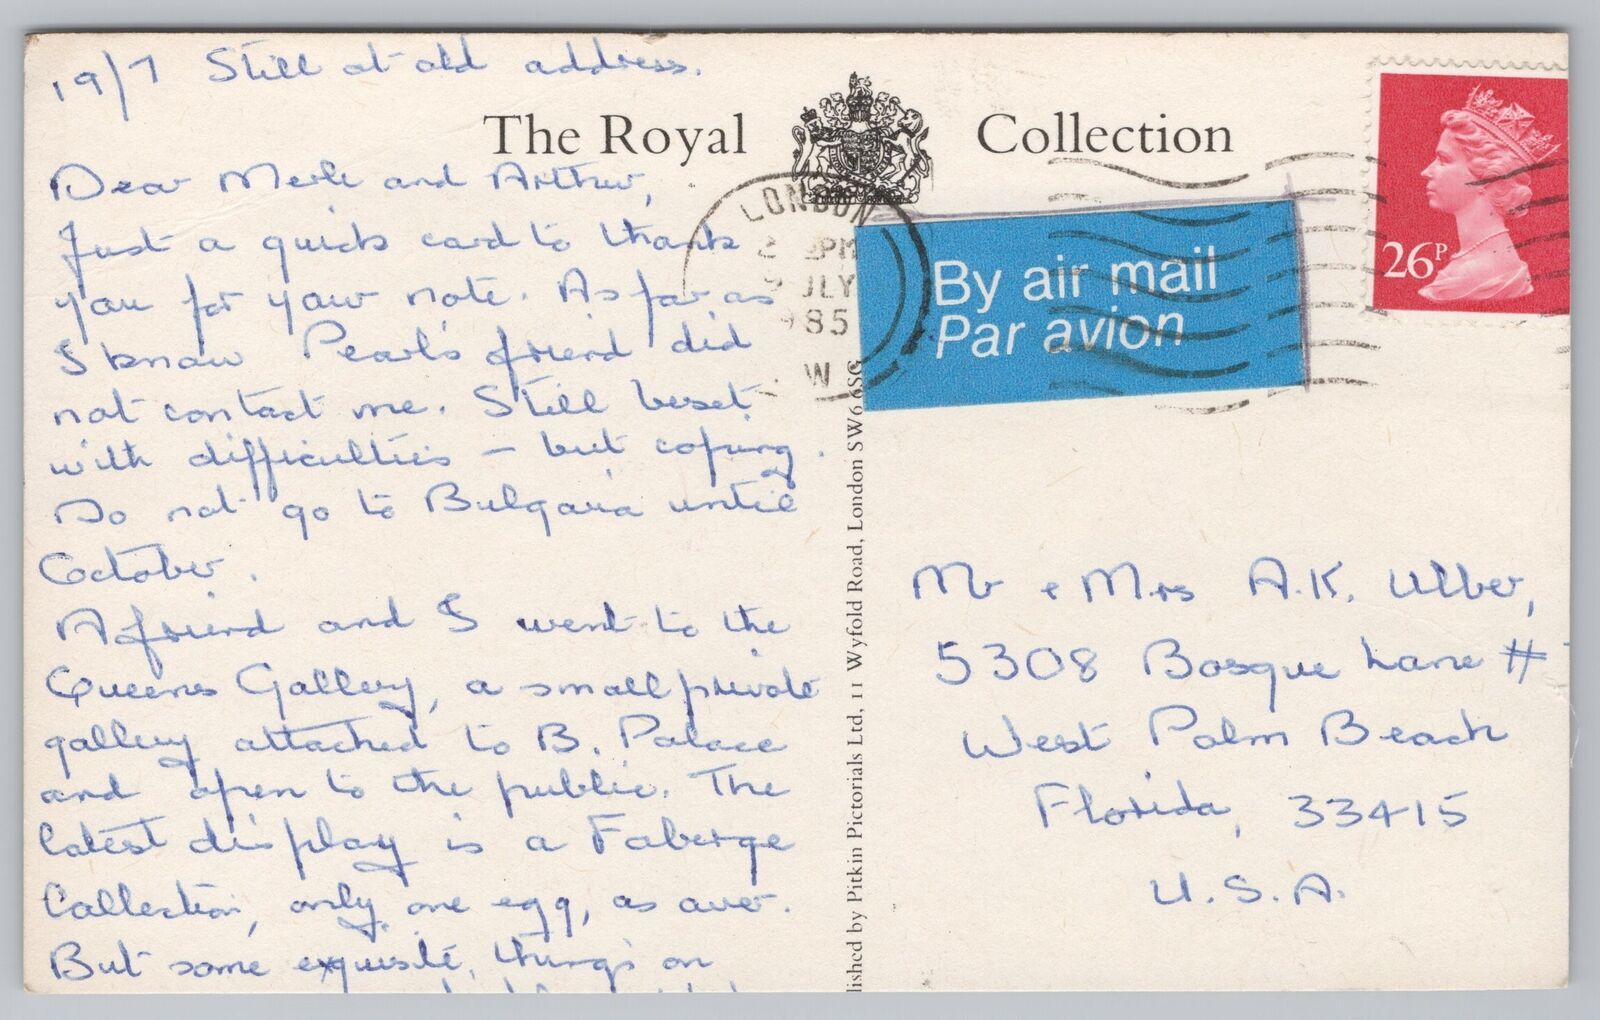 19/7 Still at old address.
The Royal Collection
Dear Merle and Arthur,
Just a quick card to thank
you for your note. As far as
I know Pearl's friend did
not contact me. Still beset
with difficulties – but coping.
Do not go to Bulgaria until
October.
A friend and I went to the
Queens Gallery, a small private
gallery attached to B. Palace
and open to the public. The
latest display is a Faberge
Collection, only one egg, as over.
But some exquisite, things on
LONDON
PM
JLY
985
W
By air mail
Par avion
26P
lished by Pitkin Pictorials Ltd, 11 Wyfold Road, London SW6 6SG
Mr & Mrs A.K. Ulber,
5308 Bosque Lane #
West Palm Beach
Florida, 33415
U.S.A.